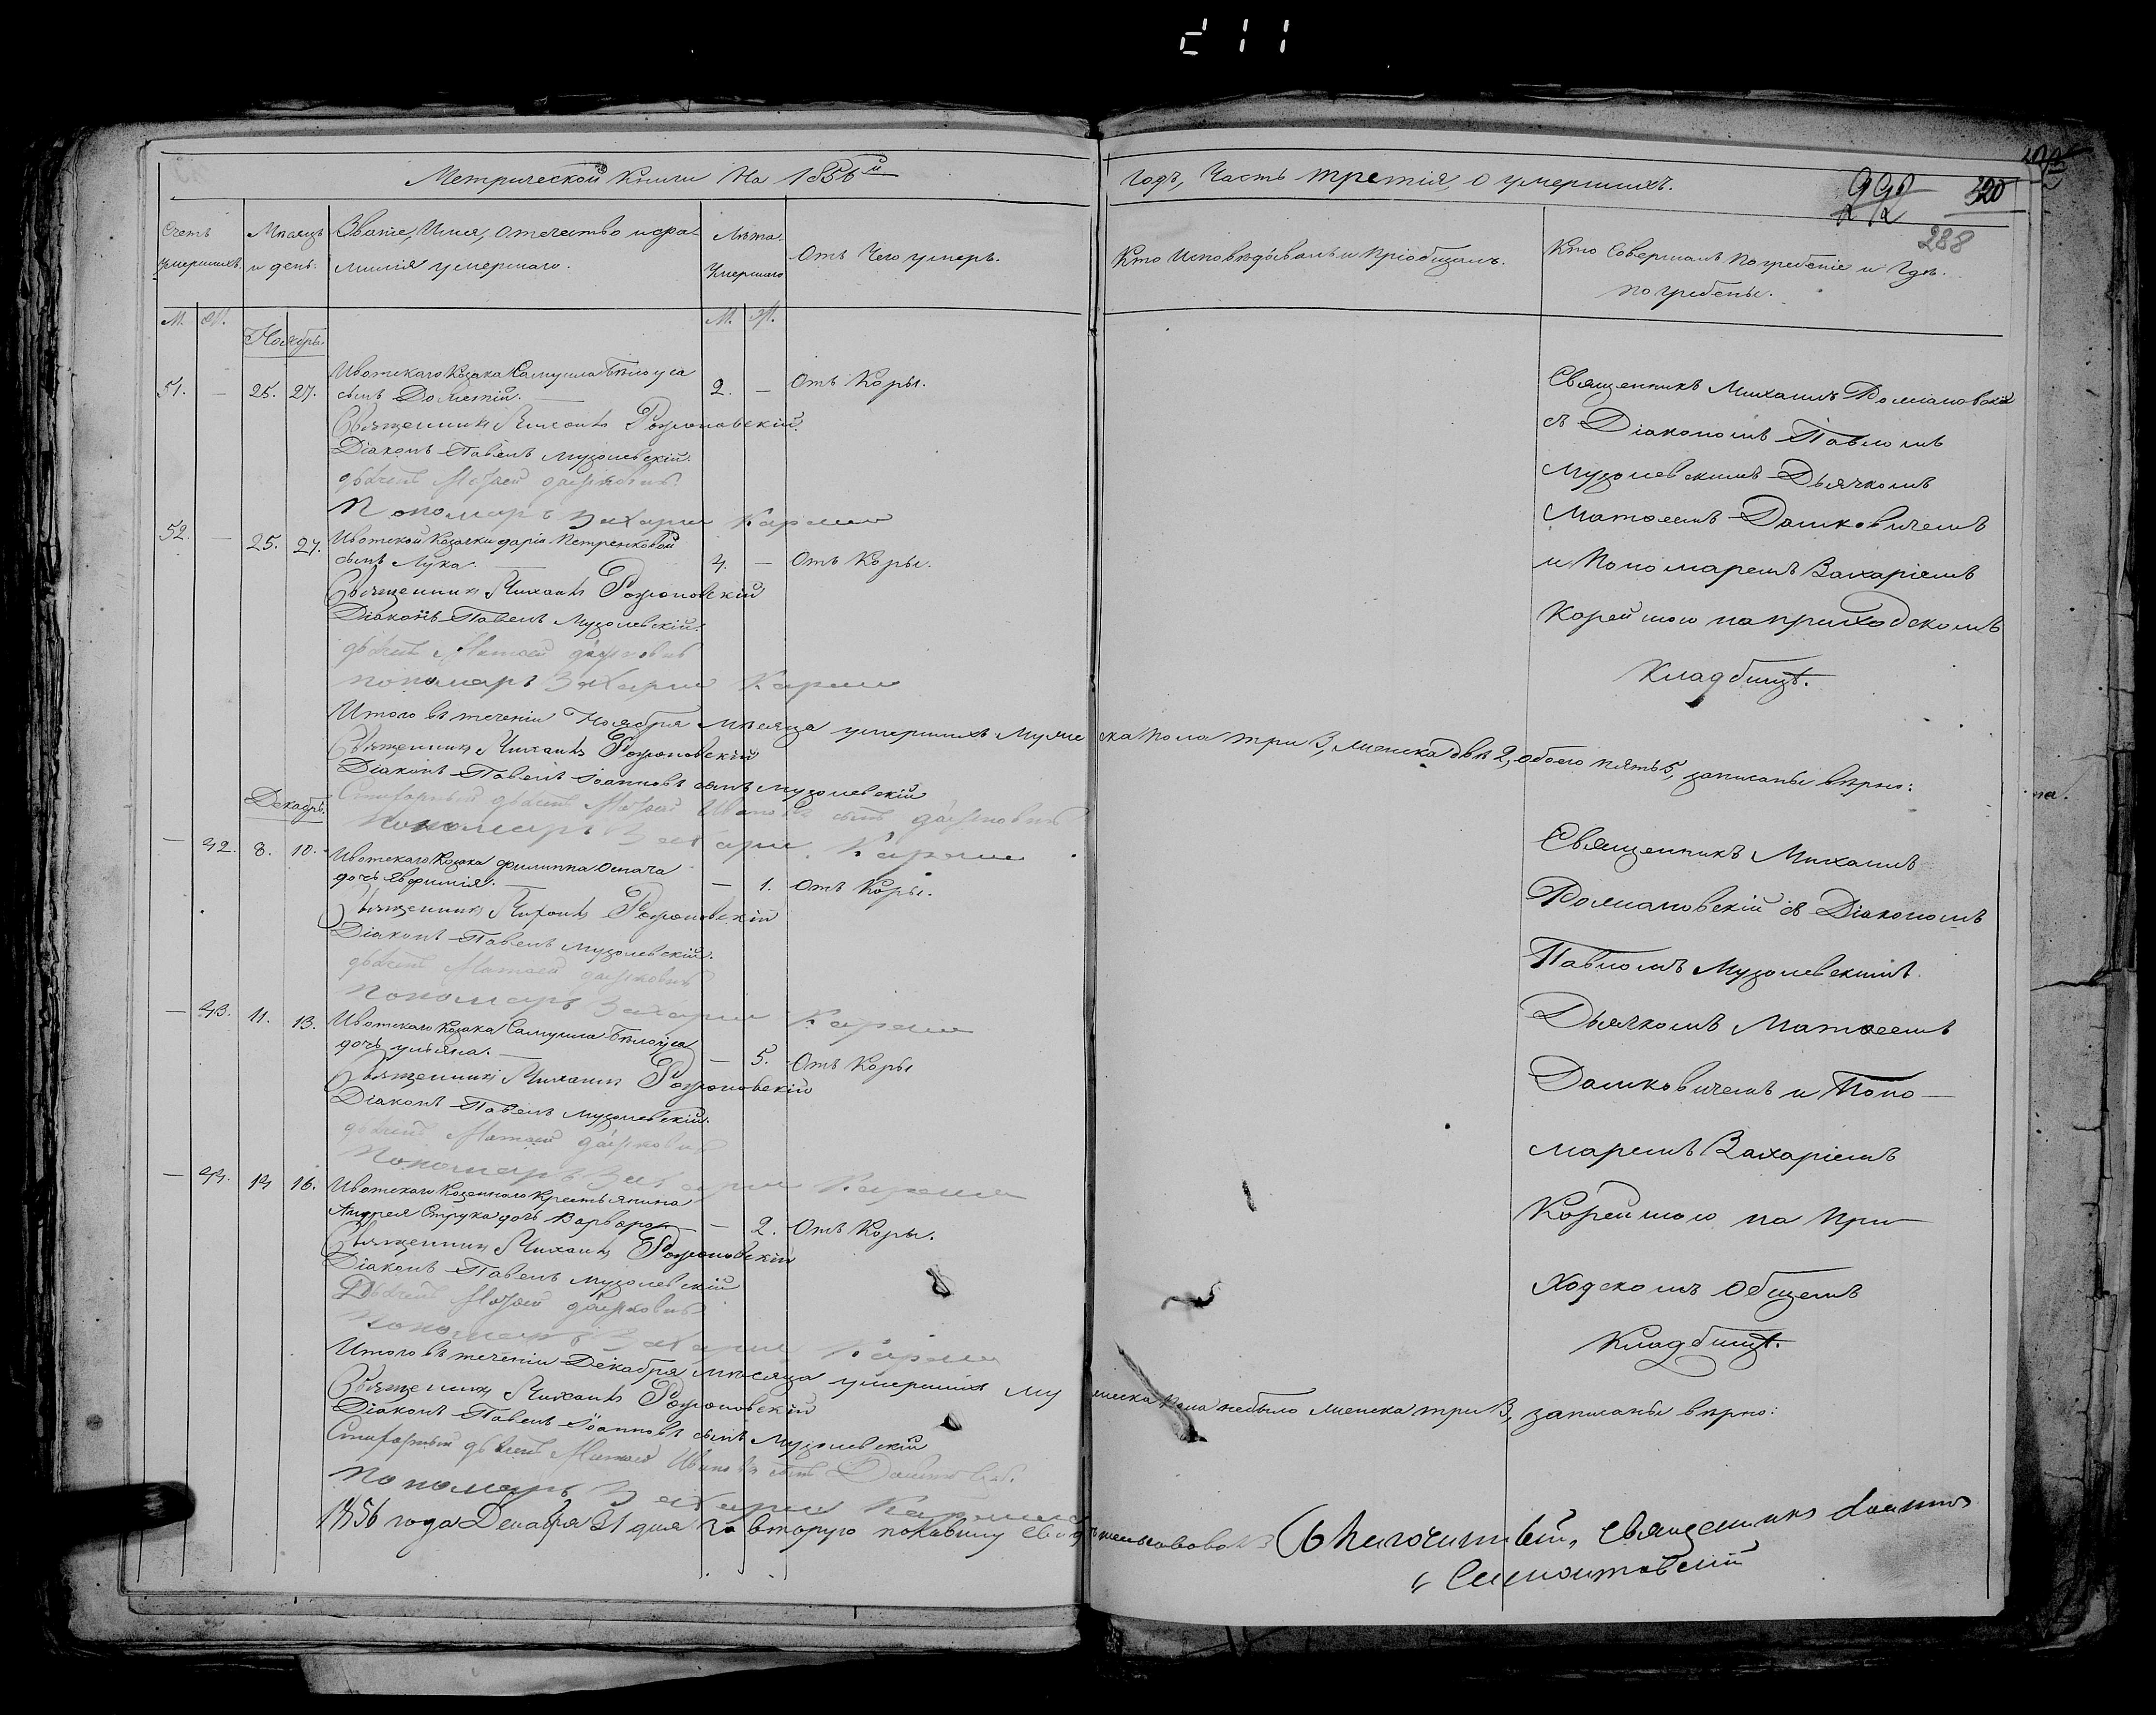 Метрической Книги На 1856й
Годъ, Часть третія, о умершихъ.
320
288
Счетъ умершихъ.
Мѣсяцъ и день.
Званіе, Имя, отечество и фамилія умершаго.
Лѣта Умершаго
Отъ Чего умеръ.
Кто Исповѣдывалъ и Пріобщалъ.
Кто Совершалъ Погребеніе и Гдѣ погребены.
М. Ж.
М. Ж.
Ноябрь.
51. — 25. 27. Ивотскаго Козака Самуила Бѣлоуса
сынъ Дометій. — 2. — Отъ Коры.
Священникъ Михаилъ
Діаконъ Павелъ Музолевскій.
дьячекъ Матѳей Дашковичъ
Пономарь Захарій
52. — 25. 27. Ивотской Козачки Даріи Петренковой
сынъ Лука. — 4. — Отъ Коры.
Священникъ Михаилъ
Діаконъ Павелъ Музолевскій.
дьячекъ Матѳей Дашковичъ
пономарь Захарій
Священникъ Михаилъ
съ Діакономъ Павломъ
Музолевскимъ Дьячкомъ
Матѳеемъ Дашковичемъ
и Пономаремъ Захаріемъ
Корейшою на приходскомъ
Кладбищѣ.
Итого въ теченіи Ноября мѣсяца умершихъ мужеска пола три 3, женска двѣ 2, обоего пять 5, записаны вѣрно:
Священникъ Михаилъ
Діаконъ Павелъ Іоанновъ сынъ Музолевскій
дьячекъ Матѳей Ивановъ сынъ Дашковичъ
Пономарь Захарій
Декабрь.
— 42. 8. 10. Ивотскаго Козака Филиппа Осмача
дочь Евфимія. — — 1. Отъ Коры.
Священникъ Михаилъ
Діаконъ Павелъ Музолевскій.
дьячекъ Матѳей Дашковичъ
Пономарь Захарій
— 43. 11. 13. Ивотскаго Козака Самуила Бѣлоуса
дочь Ульяна. — — 5. Отъ Коры
Священникъ Михаилъ
Діаконъ Павелъ Музолевскій.
дьячекъ Матѳей Дашковичъ
Пономарь Захарій
— 44. 14 16. Ивотскаго Казеннаго Крестьянина
Андрея Струка дочь Варвара — 2. Отъ Коры.
Священникъ Михаилъ
Діаконъ Павелъ Музолевскій
Дьячекъ Матѳей Дашковичъ
Пономарь Захарій
Священникъ Михаилъ
съ Діакономъ
Павломъ Музолевскимъ
Дьячкомъ Матѳеемъ
Дашковичемъ и Поно-
маремъ Захаріемъ
Корейшою на При-
ходскомъ Общемъ
Кладбищѣ.
Итого въ теченіи Декабря мѣсяца умершихъ мужеска пола небыло женска три 3, записаны вѣрно:
Священникъ Михаилъ
Діаконъ Павелъ Іоанновъ сынъ Музолевскій
дьячекъ Матѳей Ивановъ сынъ Дашковичъ.
Пономарь Захарій
1856 года Декабря 31 дня за вторую половину свидѣтельствовалъ Благочинный, Священникъ